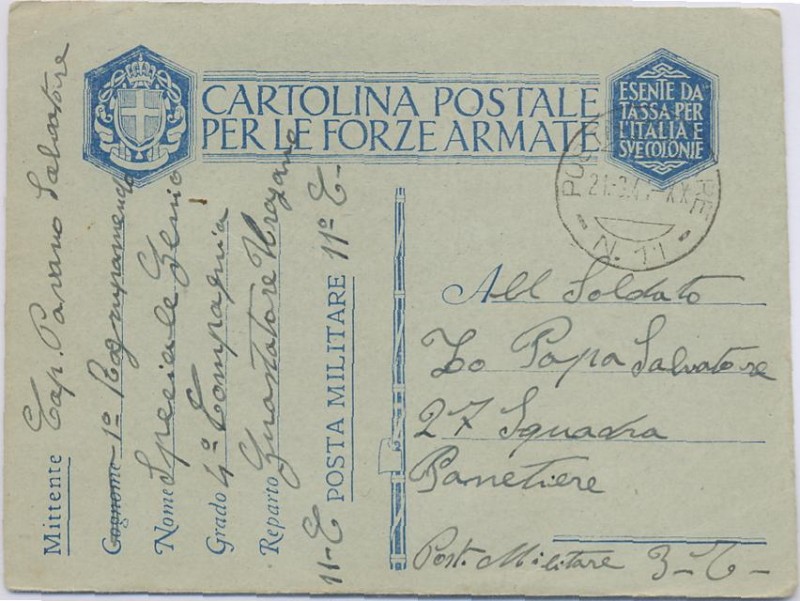 CARTOLINA POSTALE
PER LE FORZE ARMATE
ESENTE DA
TASSA PER
L'ITALIA E
SVE COLONIE
N. 11
Mittente Cap. Pavano Salvatore
Cognome 1° Raggruppamento
Nome Speciale Genio
Grado 4° Compagnia
Reparto Guastatore
11-T POSTA MILITARE 11° T-
All Soldato
Lo Papa Salvatore
27 Squadra
Panetiere
Post. Militare 3-T-